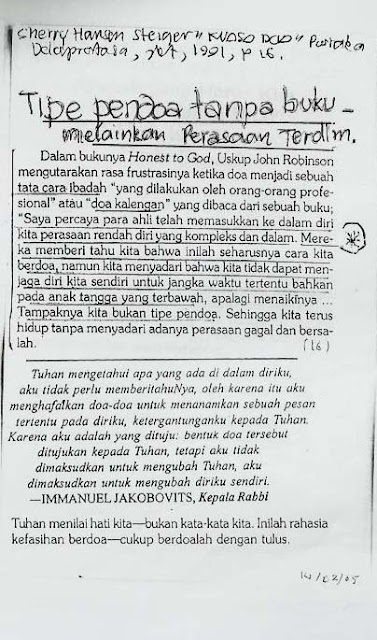 Cherry Hansen Steiger "KUASA DOA" Pustaka
Delapratasa, Jkt, 1991, p 16.
Tipe pendoa tanpa buku -
melainkan Perasaan Terdlm.
Dalam bukunya Honest to God, Uskup John Robinson
mengutarakan rasa frustrasinya ketika doa menjadi sebuah
tata cara ibadah "yang dilakukan oleh orang-orang profe-
sional" atau "doa kalengan" yang dibaca dari sebuah buku;
"Saya percaya para ahli telah memasukkan ke dalam diri
kita perasaan rendah diri yang kompleks dan dalam. Mere-
ka memberi tahu kita bahwa inilah seharusnya cara kita
berdoa, namun kita menyadari bahwa kita tidak dapat men-
jaga diri kita sendiri untuk jangka waktu tertentu bahkan
pada anak tangga yang terbawah, apalagi menaikinya ...
Tampaknya kita bukan tipe pendoa. Sehingga kita terus
hidup tanpa menyadari adanya perasaan gagal dan bersa-
lah.
(16)
Tuhan mengetahui apa yang ada di dalam diriku,
aku tidak perlu memberitahuNya, oleh karena itu aku
menghafalkan doa-doa untuk menanamkan sebuah pesan
tertentu pada diriku, ketergantunganku kepada Tuhan.
Karena aku adalah yang dituju: bentuk doa tersebut
ditujukan kepada Tuhan, tetapi aku tidak
dimaksudkan untuk mengubah Tuhan, aku
dimaksudkan untuk mengubah diriku sendiri.
—IMMANUEL JAKOBOVITS, Kepala Rabbi
Tuhan menilai hati kita—bukan kata-kata kita. Inilah rahasia
kefasihan berdoa—cukup berdoalah dengan tulus.
14/02/05